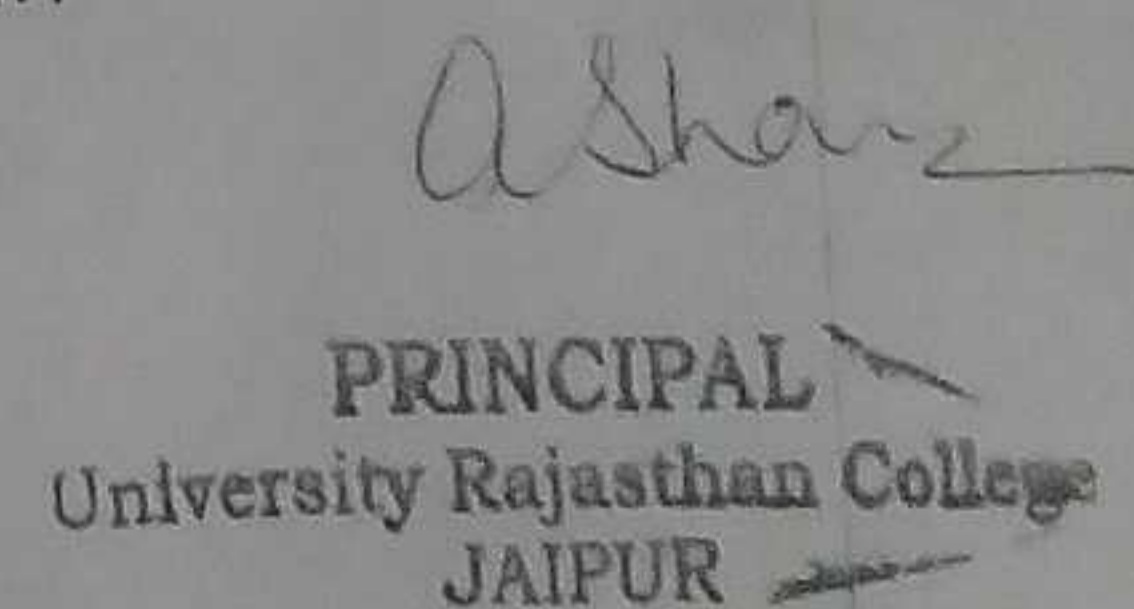 PRINCIPAL
University Rajasthan College
JAIPUR